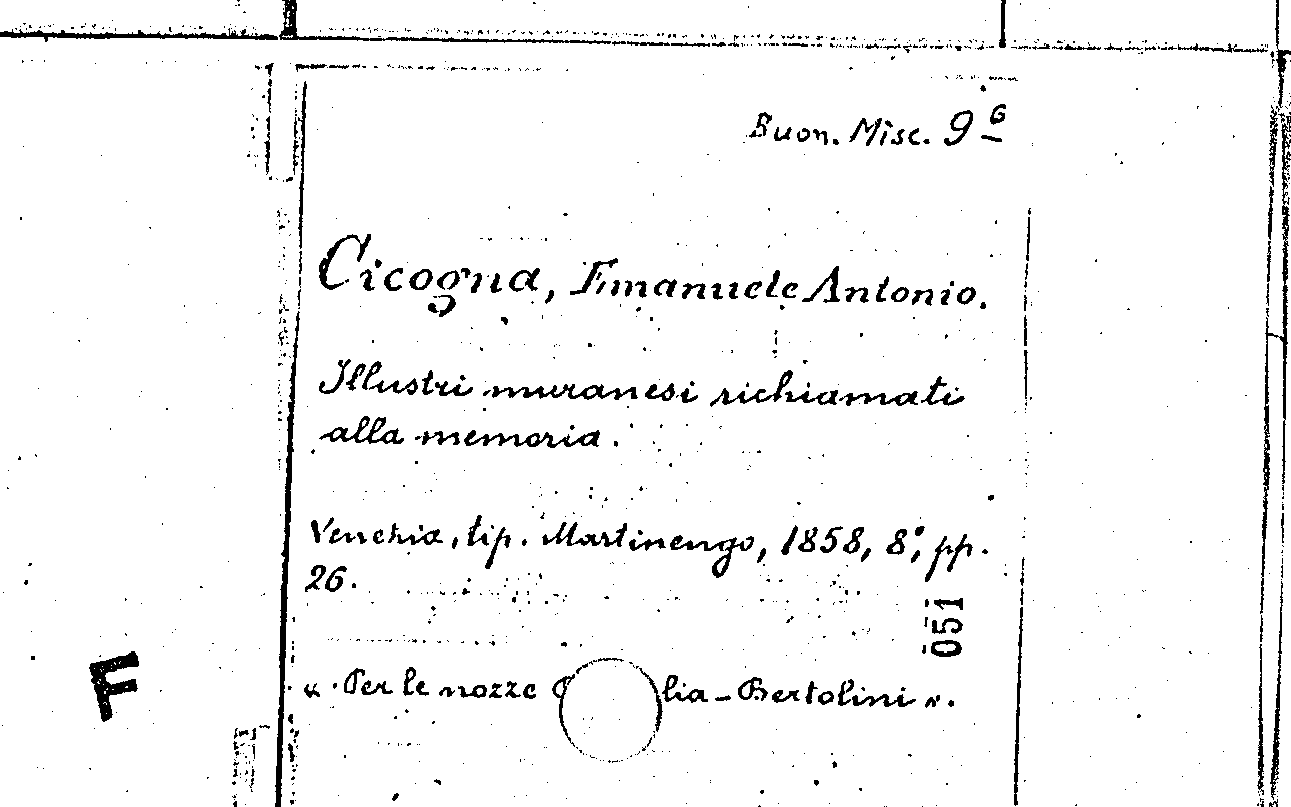 Buon. Misc. 9 6
Cicogna, Emanuele Antonio.
Illustri muranesi richiamati
alla memoria.
Venezia, tip. Martinengo, 1858, 8°, pp.
26.
051
« Per le nozze lia - Bertolini ».
F